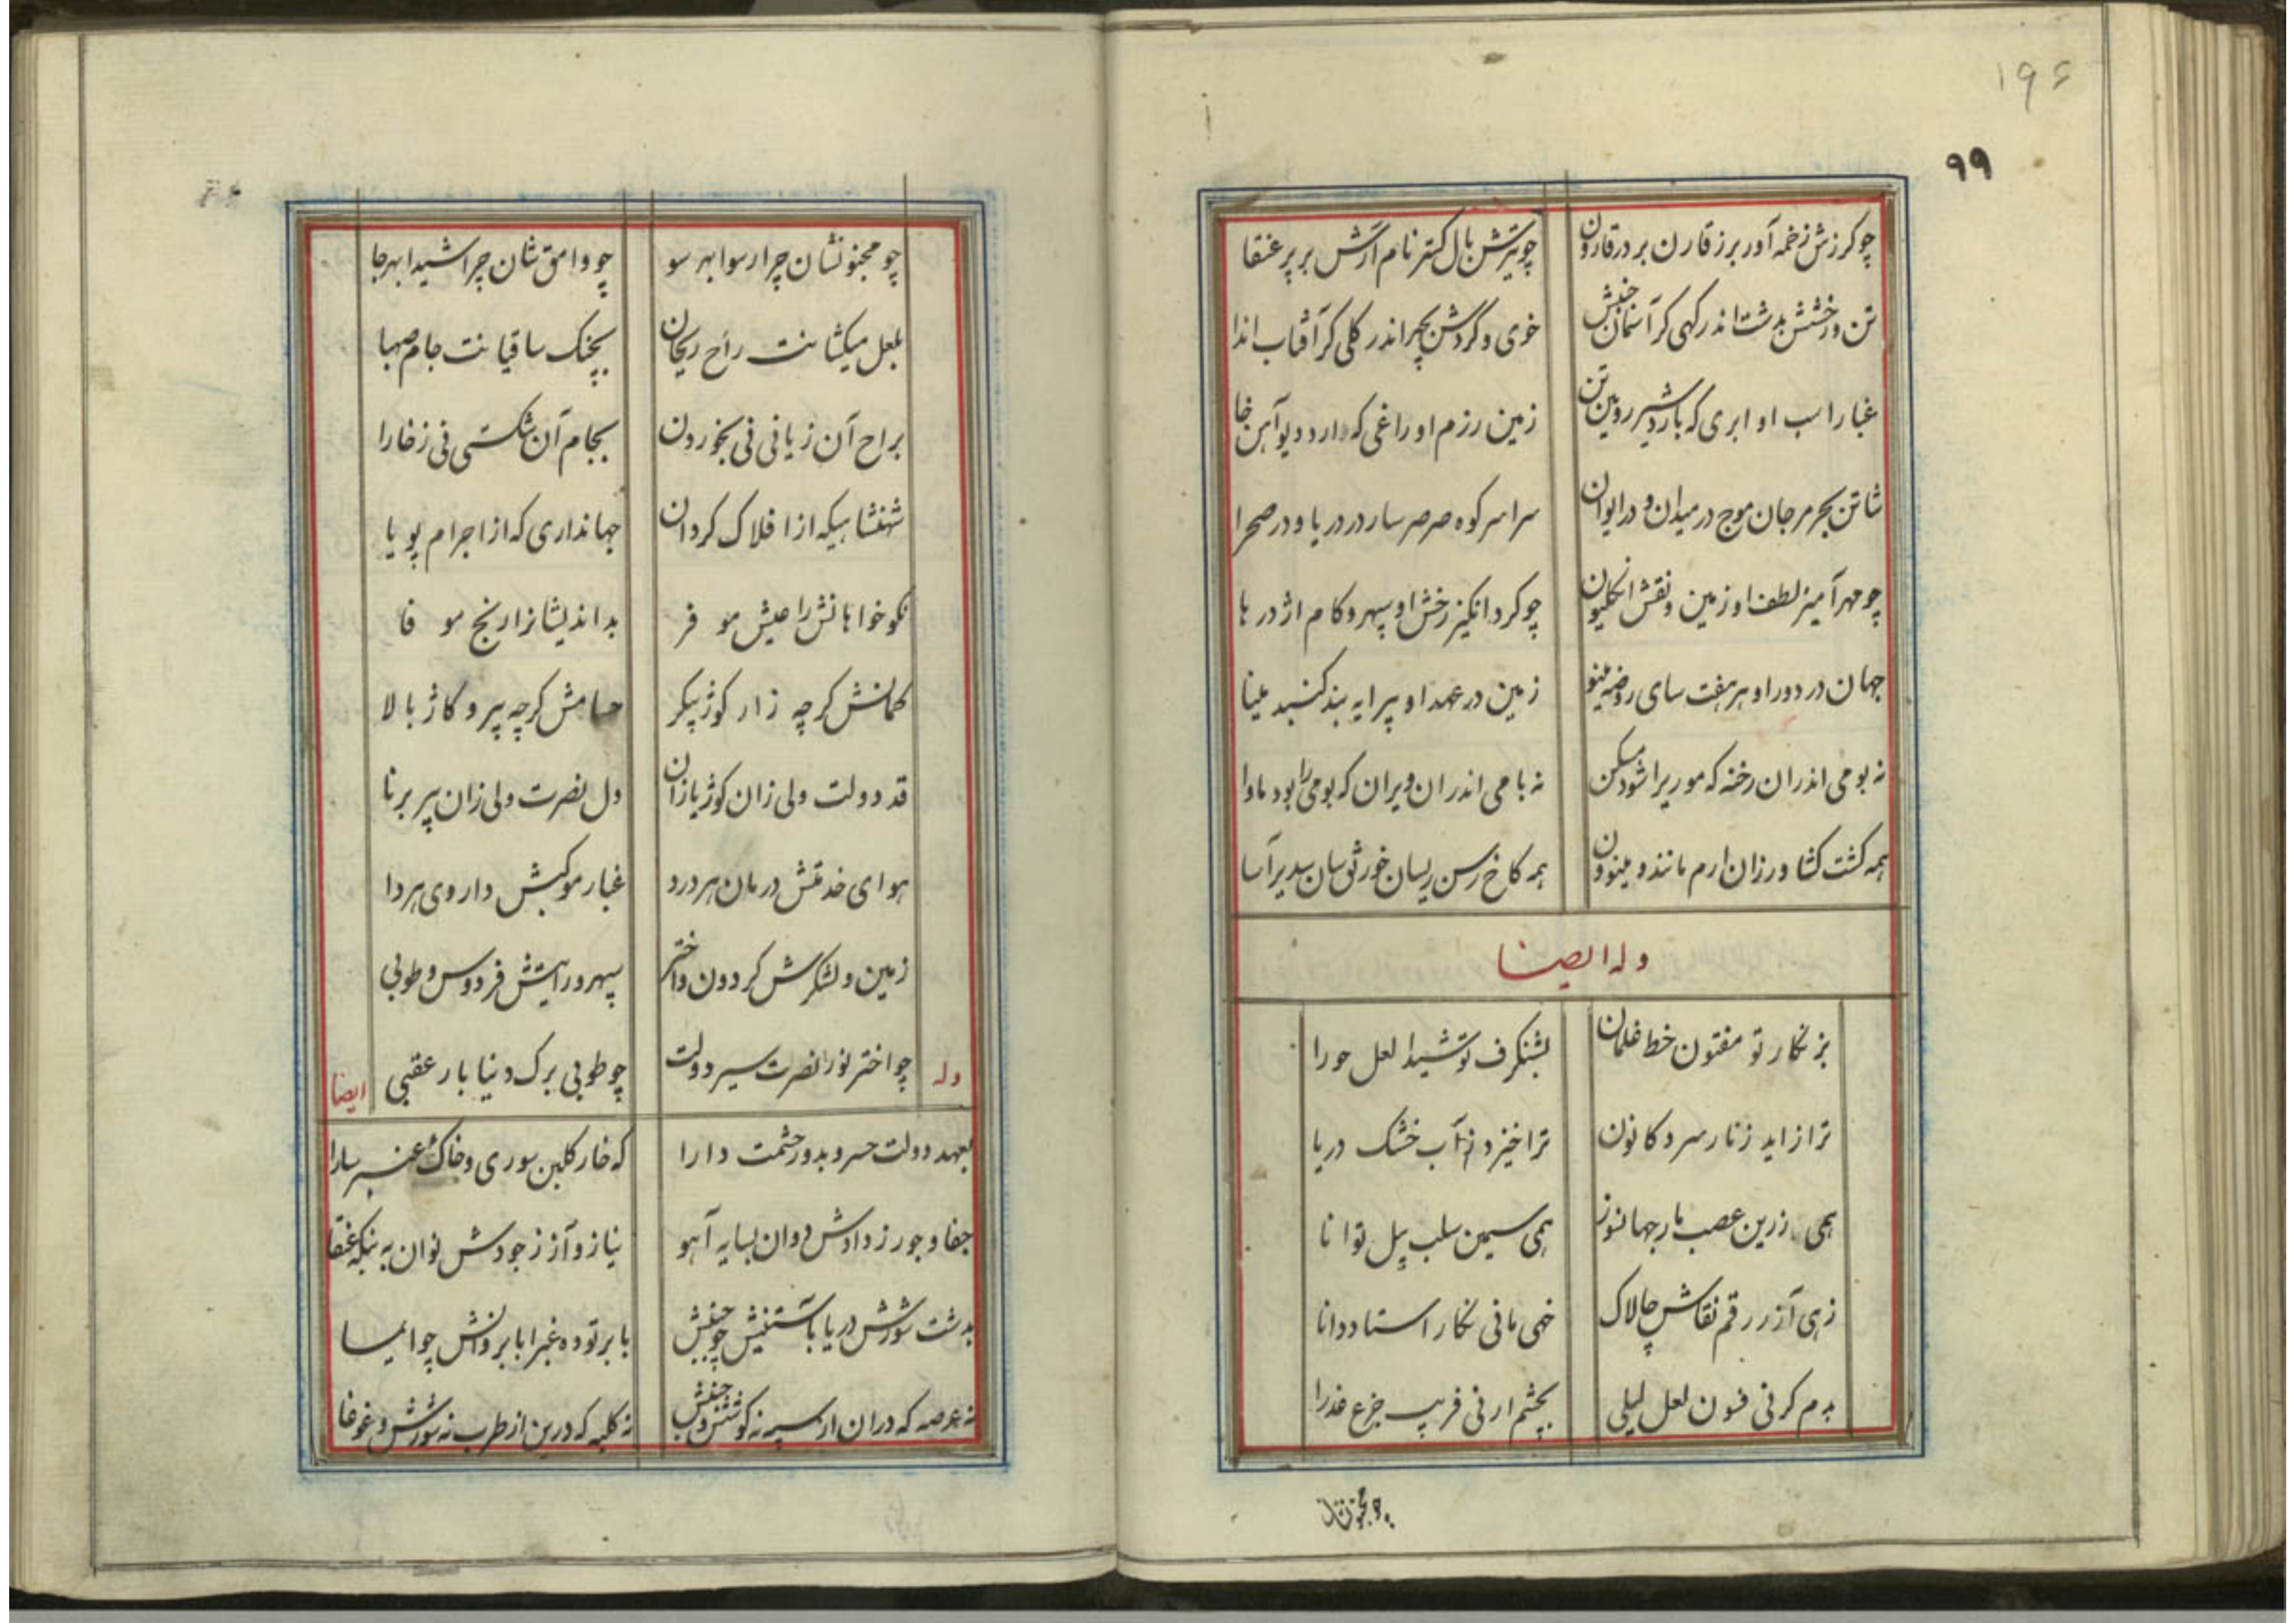 ۱۹۶
۹۹
چو کرزش زخمه آور برز قارن بر در قارون چو تیرش بال کستر نام آرش بر پر عنقا
تن و رخشش بدشت اندر کهی کر آسمان خفتش خوی و گردش بچهر اندر کلی کر آفتاب اندا
غبار اسب او ابری که بارد شیر رویین تن زمین رزم او راغی که دارد دیو آهن خا
شاتن بحر مرجان موج در میدان و در ایوان سراسر کوه صرصر سار در دریا و در صحرا
چو مهر آمیز لطف او زمین و نقش انکلیون چو کرد انکیز رخش او سپهر و کام اژدرها
جهان در دور او بر هفت سای روضه مینو زمین در عهد او پیرایه بند کنبد مینا
نه بومی اندران رخنه که موریرا شود مسکن نه بامی اندران ویران که بومی را بود ماوا
همه کشت کشاورزان ارم مانند و مینو ون همه کاخ رسن ریسان خورنق سان سدیر آسا
وله ایضا
بزنکار تو مفتون خط غلمان بشنکرف تو شیدا لعل حورا
ترا زاید ز نار سرد کانون ترا خیزد ز آب خشک دریا
همی زرین عصب مار جهانسوز همی سیمین سلب پیل توانا
زهی آزر رقم نقاش چالاک خهی مانی نکار استاد دانا
بدم کرنی فسون لعل لیلی بچشم ارنی فریب جزع عذرا
چو مجنونشان
چو مجنونشان چرا رسوا بهر سو چو وامق شان چرا شیدا بهر جا
بلعل میکشانت راح ریحان بچنک ساقیانت جام صهبا
براح آن زیانی نی بخوردن بجام آن شکستی نی ز خارا
شهنشاهیکه از افلاک کردان جهانداری که از اجرام پویا
نکو خواهانش را عیش موفر بداندیشانرا رنج موفا
کمانش کرچه زار کوژ پیکر حسامش کرچه پیر و کاژ بالا
قد دولت ولی زان کوژ یازان دل نصرت ولی زان پیر برنا
هوای خدمتش درمان هر درد غبار موکبش داروی هر دا
زمین و لشکرش کردون و اختر سپهر و رایتش فردوس و طوبی
چو اختر نور نصرت سیر دولت چو طوبی برک دنیا بار عقبی
وله ایضا
بعهد دولت خسرو بدور حشمت دارا که خار کلبن سوری و خاک عنبر سارا
جفا و جور ز دادش دوان بسایه آهو نیاز و آز ز جودش نوان به بنکه عنقا
بدشت شورش دریا باستینش چو جنبش بابر توده غبرا بابر دانش چو ایما
نه عرصه که دران از سپه نه کوشش و جنبش نه کلبه که درین از طرب نه شورش و غوغا